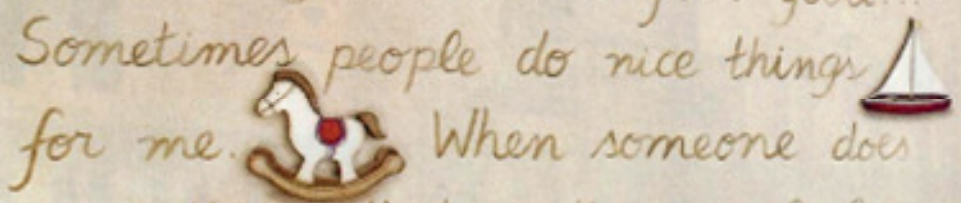 Sometimes people do nice things
for me. When someone does